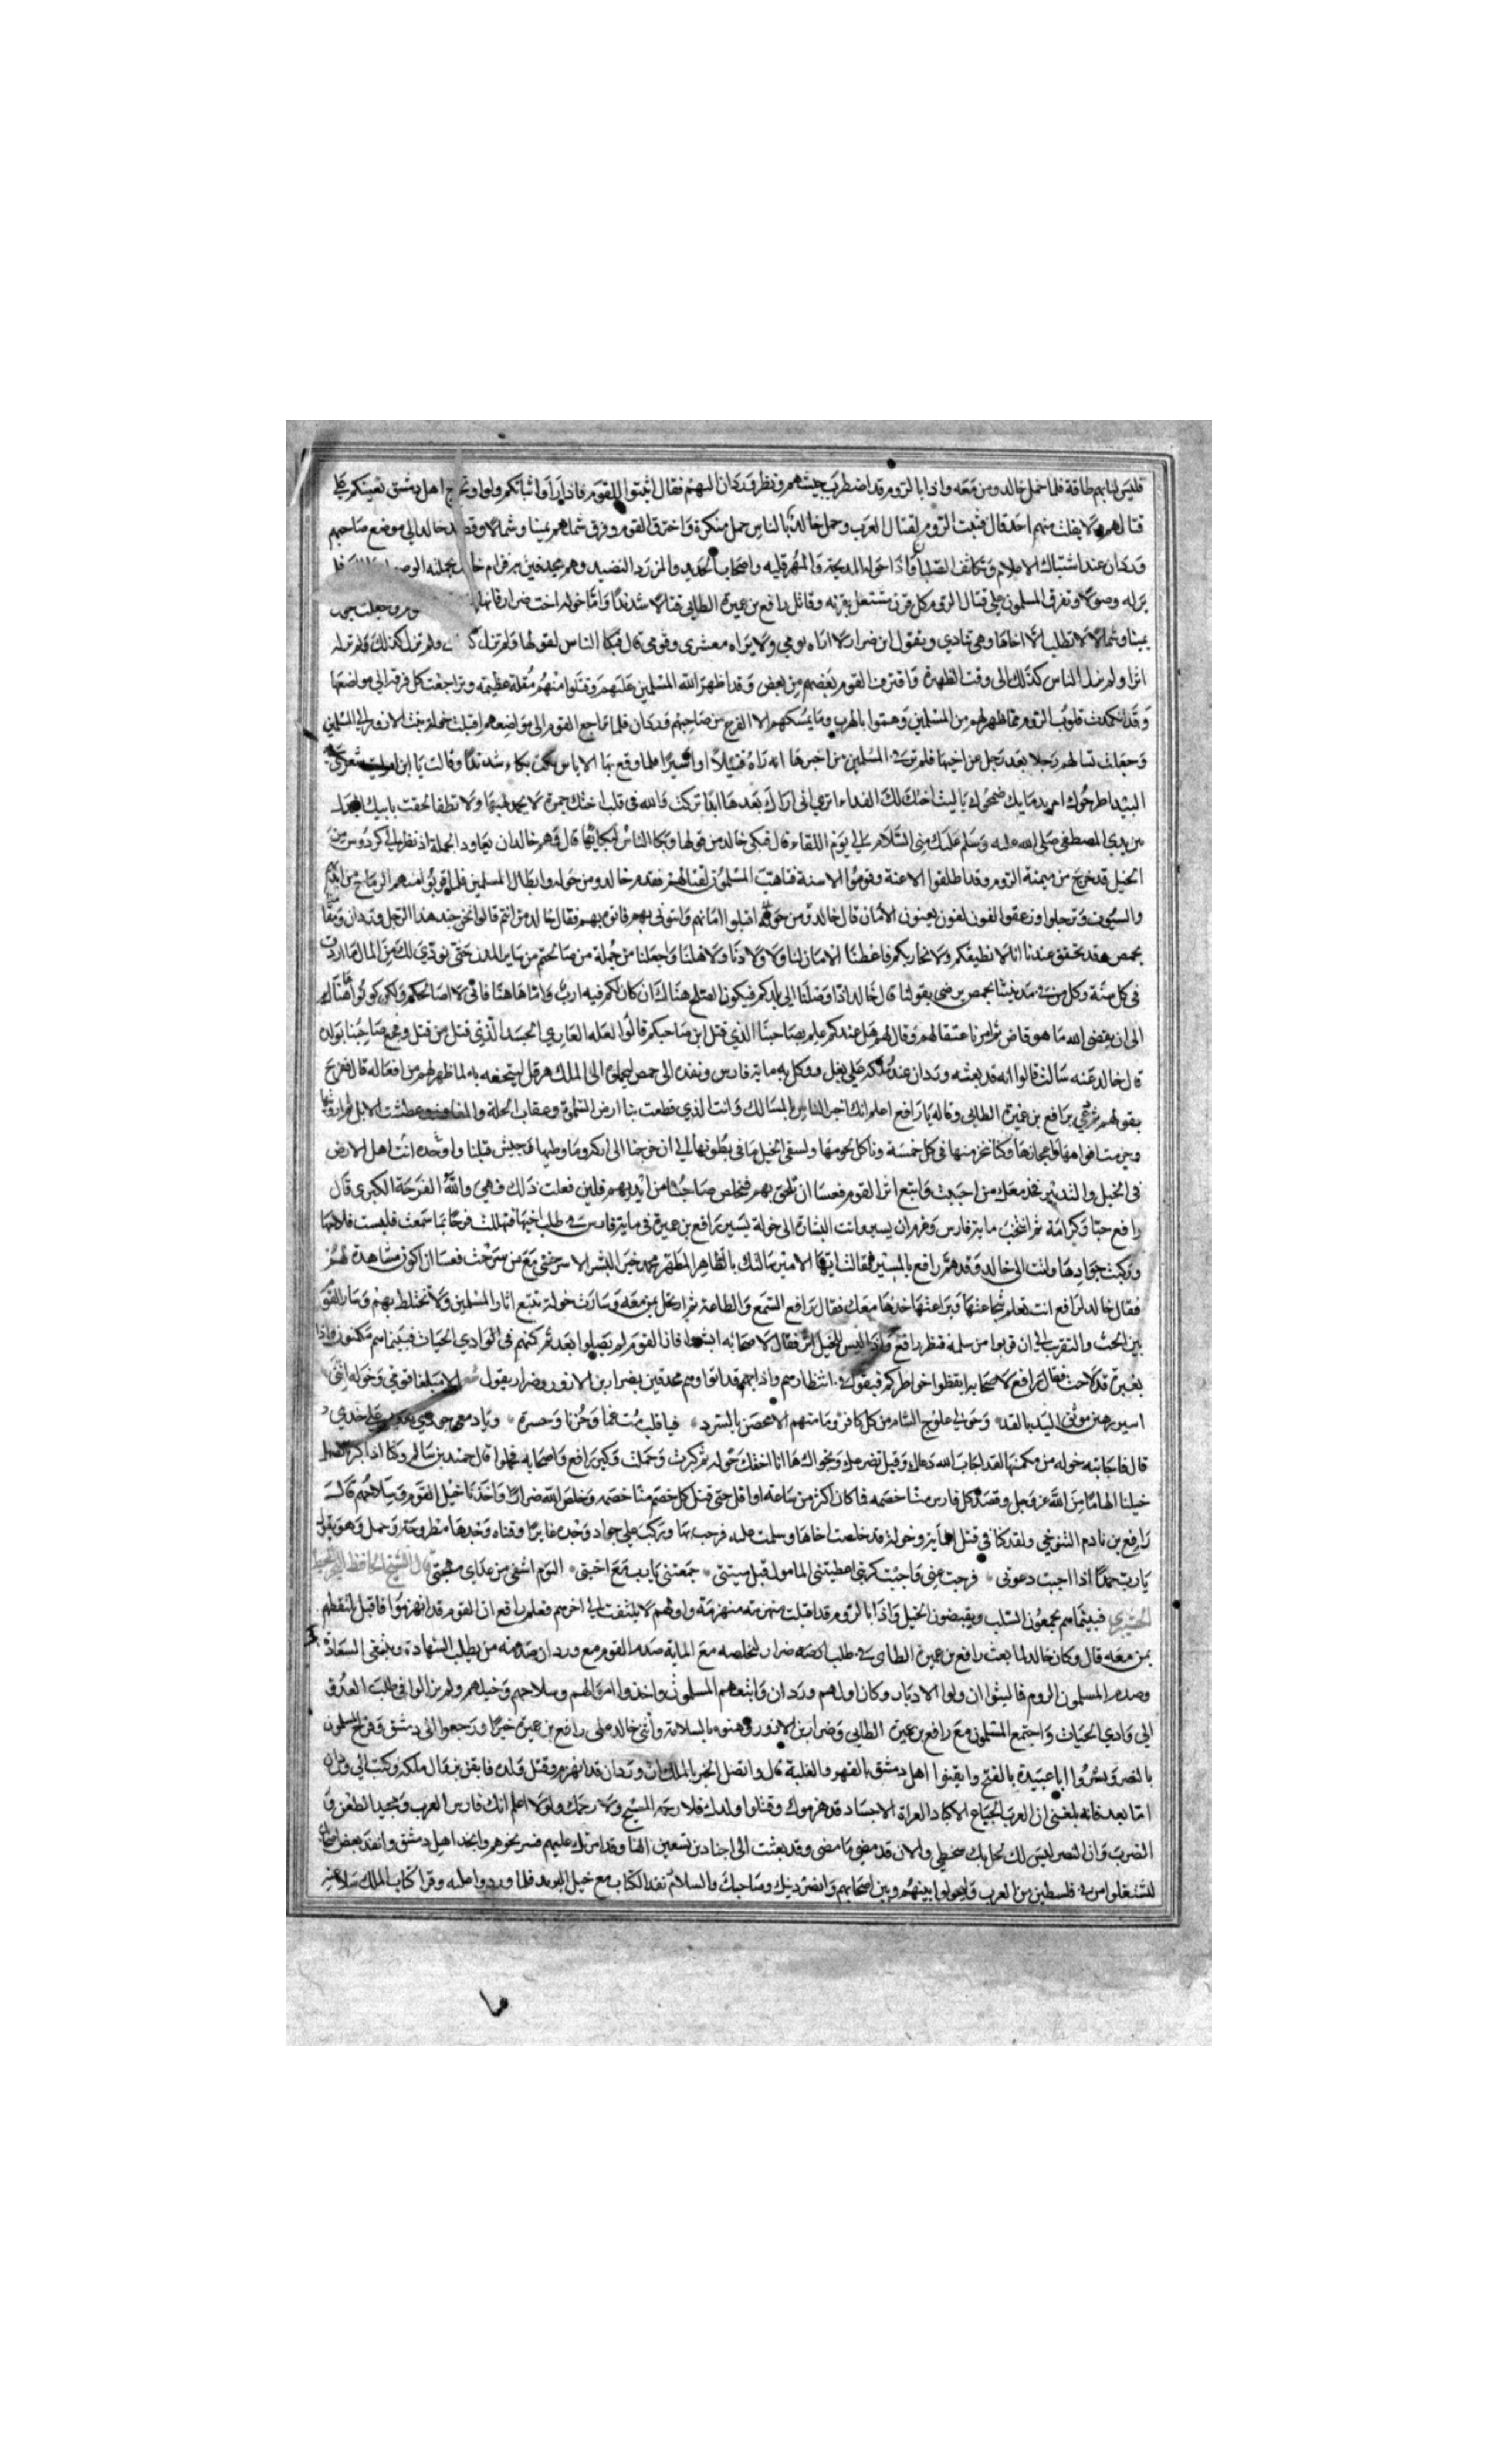 فليس لنا بهم طاقة فلما حمل خالد ومن معه واذا بالروم قد اضطرب جيشهم ونظر وردان اليهم فقال اثبتوا للقوم فاذا راوا ثباتكم ولوا اهل دمشق تعينكم على
قتالهم ولا يفلت منهم احد قال فثبت الروم لقتال العرب وحمل خالد بالناس حمل منكرة واخترق القوم وفرق شملهم يمينا وشمالا خالد الى موضع صاحبهم
وردان عند اشتباك الاعلام وتكاثف الصلبان واذا حوله المدبجة والمهرقلية واصحاب الحديد والزرد النضيد وهم محدقين به
وصولا وتفرق المسلمون على قتال الروم كل قرن مشتغل بقرنه وقاتل رافع بن عميرة الطايى قتالا شديدا واما خوله اخت ضرار وجعلت
يمينا وشمالا لا تطلب الا اخاها وهى تنادي وتقول اين ضرار لا اراه يومي ولا يراه معشرى وقومى قال فبكا الناس لقولها ولم تزل كذلك
اثرا ولم يزل الناس كذلك الى وقت الظهيرة وافترق القوم بعضهم من بعض وقد اظهر الله المسلمين عليهم وقتلوا منهم مقتلة عظيمة وتراجعت كل فرقة الى مواضعها
وقد انكمدت قلوب الروم مما ظهر لهم من المسلمين وهموا بالهرب وما يمسكهم الا الفزع من صاحبهم وردان فلما تراجع القوم الى مواضعهم اقبلت خولة بنت الازور الى المسلمين
وجعلت تسالهم رجلا بعد رجل عن اخيها فلم تر فى المسلمين من اخبرها انه راه قتيلا او اسيرا فلما وقع بها الاياس بكت بكاء شديدا وقالت يا ابن امى ليت شعرى
البيدا طرحوك ام بدمايك ضمخوك يا ليت اختك لك الفداء اترى انى اراك بعدها ابدا تركت والله فى قلب اختك جمرة لا يخمد لهيبها ولا تطفا لحقت بابيك
بين يدي المصطفى صلى الله عليه وسلم عليك منى السلام الى يوم اللقاء قال فبكى خالد من قولها وبكا الناس لبكايها قال وهم خالد ان يعاود الحملة اذ نظر الى كردوس من
الخيل قد خرج من ميمنة الروم وقد اطلقوا الاعنة وقوموا الاسنة فتاهب المسلمون لقتالهم فتقدم خالد ومن حوله وابطال المسلمين فلما قربوا منهم الرماح من
والسيوف وترجلوا وزعقوا لفون لفون يعنون الامان قال خالد ومن حوله اقبلوا امانهم واتونى بهم فاتوه بهم فقال خالد من انتم قالوا نحن جند هذا الرجل وردان
بحمص وقد تحقق عندنا انا لا نطيقكم ولا نحاربكم فاعطنا الامان لنا ولاولادنا ولاهلنا واجعلنا من جملة من صالحتم من ساير المدن حتى نودى لك من المال ما اردت
فى كل سنة وكل من فى مدينتنا بحمص يرضى بقولنا قال خالد اذا وصلنا الى بلدكم فيكون الصلح هناك ان كان لكم فيه ارب واما هاهنا فانى لا اصالحكم ولكن كونوا معنا
الى ان يقضى الله ما هو قاض ثم امرنا عتقالهم وقال لهم هل عندكم علم بصاحبنا الذي قتل ابن صاحبكم قالوا لعله العاري الجسد الذي قتل من قتل وفجع صاحبنا بولده
قال خالد عنه سالت قالوا انه قد بعثه وردان عند ملكه على بغل ووكل به ماية فارس ونفذه الى حمص ليحملوه الى الملك هرقل ليتحفه به لما ظهر لهم من افعاله قال ففرح
بقولهم ثم دعي برافع بن عميرة الطايى وقال له يا رافع اعلم انك اخبر الناس بالمسالك وانت الذي قطعت بنا ارض السماوة وعطشت الابل
وحزمت افواهها وكنا ننحر منها فى كل خمسة وناكل لحومها ونسقى الخيل ما فى بطونها الى ان خرجنا الى اركه وما وطيها جيش قبلنا وانت اهل الارض
فى الخيل والتدبير فخذ معك من احببت واتبع اثر القوم فعسا ان تلحق بهم فتخلص صاحبنا من ايديهم فلين فعلت ذلك فهى والله الفرحة الكبرى قال
رافع حبا وكرامة ثم انتخب ماية فارس وعزم ان يسير واتت البشارة الى خولة بمسير رافع بن عميرة فى ماية فارس فى طلب اخيها فتهللت فرحا بما سمعت فلبست
وركبت جوادها واتت الى خالد وقد هم رافع بالمسير فقالت ايها الامير سالتك بالطاهر المطهر محمد خير البشر الا سرحتنى مع من سرحت فعسا ان اكون مشاهدة لهم
فقال خالد لرافع انت تعلم شجاعتها وبراعتها خذها معك فقال رافع السمع والطاعة ثم ارتحل بمن معه وسارت خولة تتبع اثار المسلمين ولا تختلط بهم وسار القوم
بين الحث والتقرب الى ان قربوا من سلمه فنظر رافع واذا ليس للخيل اثر فقال لاصحابه ابشروا فان القوم لم يصلوا بعد ثم كمنهم فى الوادي الحيات فبينما هم مكمنون واذا
بغبرة قد لاحت فقال رافع لاصحابه ايقظوا خواطركم فبقوا فى انتظارهم واذا بهم قد اتوا وهم محدقين بضرار بن الازور وضرار يقول الا بلغا قومي وخولة اننى
اسير رهين موثق اليد بالقد وحولى علوج الشام من كل كافر وما منهم الا تحصن بالسرد فيا قلب مت غما وحزنا وحسرة ويا دمع جودي على خدي
قال فاجابته خوله من مكمنها لقد اجاب الله دعاك وقبل تضرعك ونجواك ها انا اختك خوله ثم كبرت وحملت وكبر رافع واصحابه وحملوا قال حميد بن سالم
خيلنا الهاما من الله عز وجل وقصد كل فارس منا خصمه فما كان اكثر من ساعة او اقل حتى قتل كل خصم منا خصمه وخلص الله ضرارا واخذنا خيل القوم وسلاحهم قال
رافع بن نادم التنوخي ولقد كنا فى قتل الماية وخولة قد خلصت اخاها وسلمت عليه فرحب بها وركب على جواد وجده غايرا وقناه وجدها مطروحة وحمل وهو يقول
يا رب حمدا اذا اجبت دعوتى فرجت عنى واجبت كربتى اعطيتنى المامول قبل ميتتى جمعتنى يا رب مع اختى اليوم اشفى من عداى مهجتى قال الشيخ الحافظ
فبينما هم يجمعون السلب ويقبضون الخيل واذا بالروم قد اقبلت منهزمة واولهم لا يلتفت الى اخرهم فعلم رافع ان القوم قد انهزموا فاقبل يلتقطهم
بمن معه قال وكان خالد لما بعث رافع بن عميرة الطاى فى طلب ضرار ليخلصه مع الماية صدم القوم مع وردان صدمة من يطلب الشهادة ويبتغى السعادة
وصدم المسلمون الروم فما لبثوا ان ولوا الادبار وكان اولهم وردان واتبعهم المسلمون واخذوا اموالهم وسلاحهم وخيلهم ولم يزالوا فى طلب العدو
الى وادي الحيات واجتمع المسلمون مع رافع بن عميرة الطايى وضرار بن الازور وهنوه بالسلامة واثنى خالد على رافع بن عميرة خيرا ورجعوا الى دمشق وفرح المسلمون
بالنصر وبشروا ابا عبيدة بالفتح وايقنوا اهل دمشق بالقهر والغلبة قال واتصل الخبر بالملك ان وردان قد انهزم وقتل ولده فايقن بزوال ملكه وكتب الى وردان
اما بعد فانه بلغنى ان العرب الجياع الاكباد العراة الاجساد قد هزموك وقتلوا ولدك فلا رحمه المسيح ولا رحمك ولولا اعلم انك فارس العرب ومجيد الطعن و
الضرب وان النصر ليس لك لحل بك سخطي والان قد مضى ما مضى وقد بعثت الى اجنادين تسعين الفا وقد امرتك عليهم فسر نحوهم وانجد اهل دمشق وانفذ بعض
ليشتغلوا من فى فلسطين من العرب ويحولوا بينهم وبين اصحابهم وانصر دينك وصاحبك والسلام نفذ الكتاب مع خيل البريد فلما ورد عليه وقرا كتاب الملك